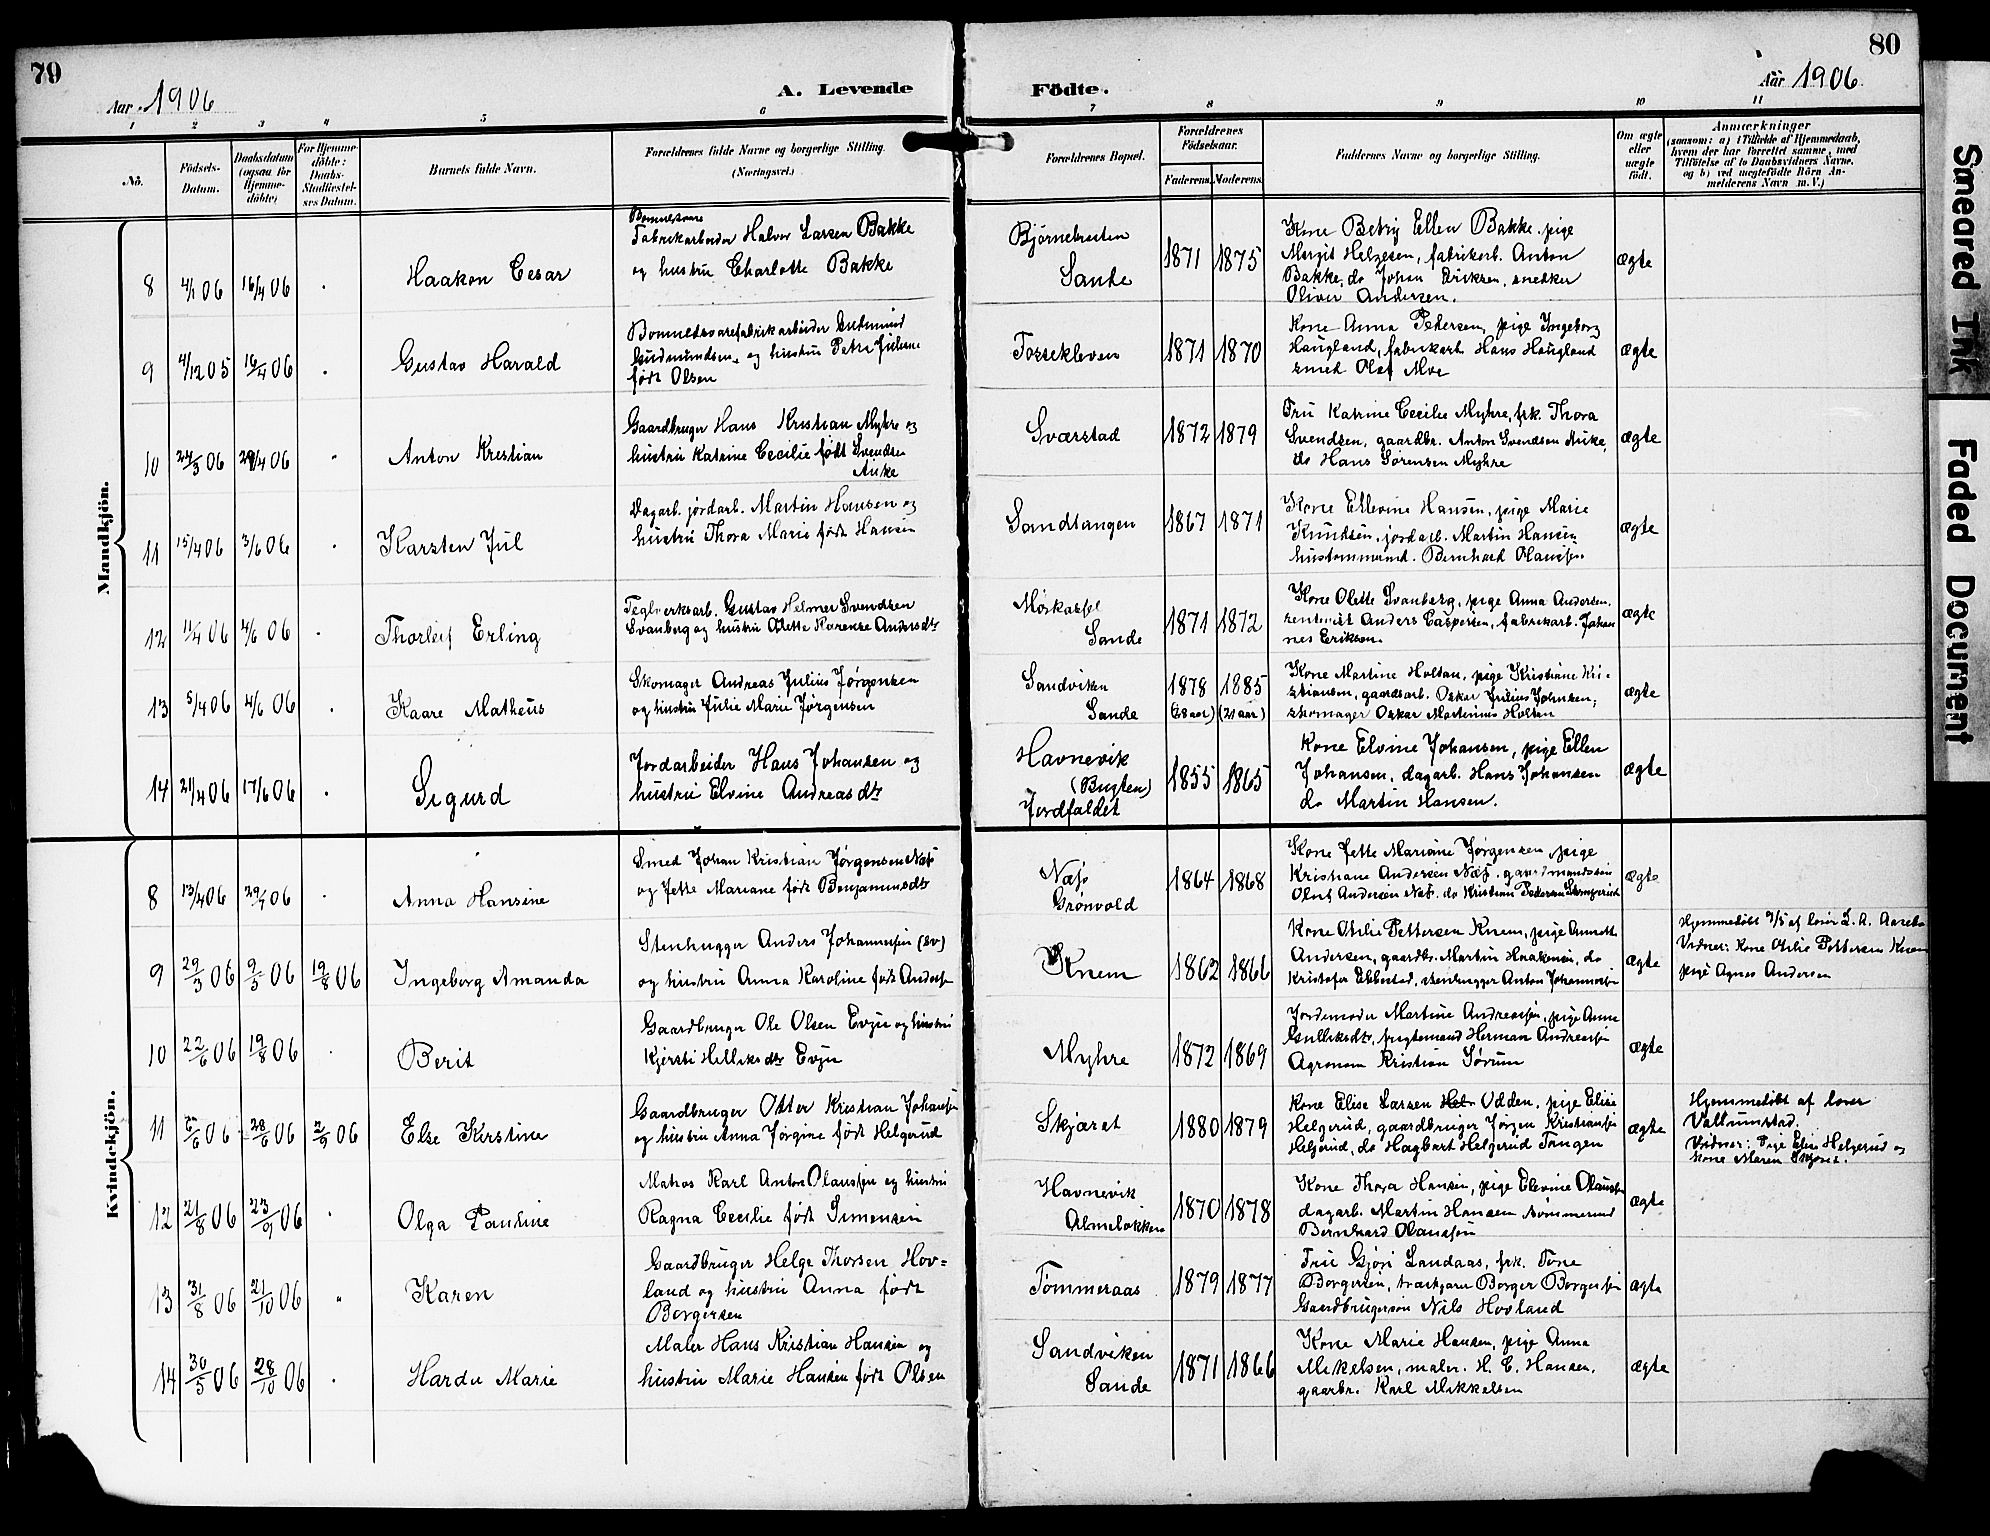 79
Aar 1906
A. Levende
Födte.
80
Aar 1906.
1 2 3 4 5 6 7 8 9 10 11
No.
Födsels-
Datum.
Daabsdatum
(ogsaa for
Hjemme-
döbte)
For Hjemme-
döbte:
Daabs-
Stadfæstel-
ses Datum.
Barnets fulde Navn.
Forældrenes fulde Navne og borgerlige Stilling.
(Næringsvei.)
Forældrenes Bopæl.
Forældrenes
Födselsaar.
Faderens. Moderens.
Faddernes Navne og borgerlige Stilling.
Om ægte
eller
uægte
födt.
Anmærkninger
(saasom: a) i Tilfælde af Hjemmedaab,
hvem der har forrettet samme, med
Tilföielse af to Daabsvidners Navne,
og b) ved uægtefödte Börn An-
melderens Navn m. V.)
Mandkjön.
8 4/1 06 16/4 06 Haakon Cesar
Fabrikarbeider Halvor Larsen Bakke
og hustru Charlotte Bakke
Bjørnebresten
Sande
1871 1875
Kone Betsy Ellen Bakke, pige
Margit Helgesen, fabrikarb. Anton
Bakke, do Johan Eriksen, snedker
Oliver Andersen.
ægte
9 4/12 05 16/4 06 Gustav Harald
Bomuldsvarefabrikarbeider Gudmund
Gudmundsen og hustru Petra Juline
født Olsen
Fossekleven
1871 1870
Kone Anna Pedersen, pige Ingeborg
Haugland, fabrikarb. Hans Haugland
smed Olaf Moe
ægte
10 24/3 06 29/4 06 Anton Kristian
Gaardbruger Hans Kristian Myhre og
hustru Katrine Cecilie født Svendsen
Auke
Svarstad
1872 1879
Fru Katrine Cecilie Myhre, frk. Thora
Svendsen, gaardbr. Anton Svendsen Auke,
do Hans Sørensen Myhre
ægte
11 15/4 06 3/6 06 Karsten Jul
Dagarb. jordarb. Martin Hansen og
hustru Thora Marie født Hansen
Sandtangen
1867 1871
Kone Ellevine Hansen, pige Marie
Knudsen, jordarb. Martin Hansen
hustømmermd. Bernhard Olaussen
ægte
12 11/4 06 4/6 06 Thorleif Erling
Teglverksarb. Gustav Helmer Svendsen
Svanberg og hustru Olette Karense Andersdtr
Sande
1871 1872
Kone Olette Svanberg, pige Anna Andersen,
rentenist Anders Caspersen, fabrikarb. Johan
nes Eriksen.
ægte
13 5/4 06 4/6 06 Kaare Matheus
Skomager Andreas Julius Jørgensen
og hustru Julie Marie Jørgensen
Sandviken
Sande
1878 1885
(28 aar) (21 aar)
Kone Martine Holtan, pige Kristiane Kri-
stiansen, gaardsarb. Oskar Julius Johnsen,
skomager Oskar Martinius Holtan
ægte
14 21/4 06 17/6 06 Sigurd
Jordarbeider Hans Johansen og
hustru Elvine Andreasdtr
Havnevik
(Bugten)
Jordfaldet
1855 1865
Kone Elvine Johansen, pige Ellen
Johansen, dagarb. Hans Johansen
do Martin Hansen.
ægte
Kvindekjön.
8 13/4 06 29/4 06 Anna Hansine
Smed Johan Kristian Jørgensen Næs
og Jette Mariane født Benjaminsdtr
Næs
Grønvold
1864 1868
Kone Jette Mariane Jørgensen, pige
Kristiane Andersen Næs, gaardmandssøn
Olert Andersen Næs, do Kristian Pedersen
ægte
9 29/3 06 9/5 06 19/8 06 Ingeborg Amanda
Stenhugger Anders Johannessen (sv)
og hustru Anna Karoline født Andersen
Knem
1862 1866
Kone Otilie Pettersen Knem, pige Annette
Andersen, gaardbr. Martin Haakensen, do
Kristofer Ebbestad, stenhugger Anton Johannessen
ægte
Hjemmedøbt 9/5 af lærer L. A.
Vidner: Kone Otilie Pettersen Knem
pige Agnes Andersen
10 22/6 06 19/8 06 Berit
Gaardbruger Ole Olsen Evju og hustru
Kjersti Helliksdtr Evju
Myhre
1872 1869
Jordemoder Martine Andreassen, pige Anne
Gulliksdtr, Herman Andreassen
Agronom Kristian Sørum
ægte
11 6/6 06 28/6 06 2/9 06 Else Kirstine
Gaardbruger Otter Kristian Johansen
og hustru Anna Jørgine født Helgerud
Skjæret
1880 1879
Kone Elise Larsen Odden, pige Elise
Helgerud, gaardbruger Jørgen Kristiansen
Helgerud, do Hagbart Helgerud Tangen
ægte
Hjemmedøbt af lærer
Vallumstad.
Vidner: Pige Elise Helgerud og
kone Maren Skjæret.
12 21/8 06 23/9 06 Olga Pauline
Matros Karl Anton Olaussen og hustru
Ragna Cecilie født Simensen
Havnevik
Almeløkken
1870 1878
Kone Thora Hansen, pige Elevine Olaussen
dagarb. Martin Hansen tømmermd
Bernhard Olaussen
ægte
13 31/8 06 21/10 06 Karen
Gaardbruger Helge Thorsen Hov=
land og hustru Anna født
Borgersen
Tømmeraas
1879 1877
Fru Gjøri Landaas, frk. Tone
Borgersen, Borger Borgersen
Gaardbrugersøn Nils Hovland
ægte
14 30/5 06 28/10 06 Hardu Marie
Maler Hans Kristian Hansen og
hustru Marie Hansen født Olsen
Sandviken
Sande
1871 1866
Kone Marie Hansen, pige Anna
Mikelsen, maler H. C. Hansen,
gaarbr. Karl Mikkelsen
ægte
Smeared Ink
Faded Document